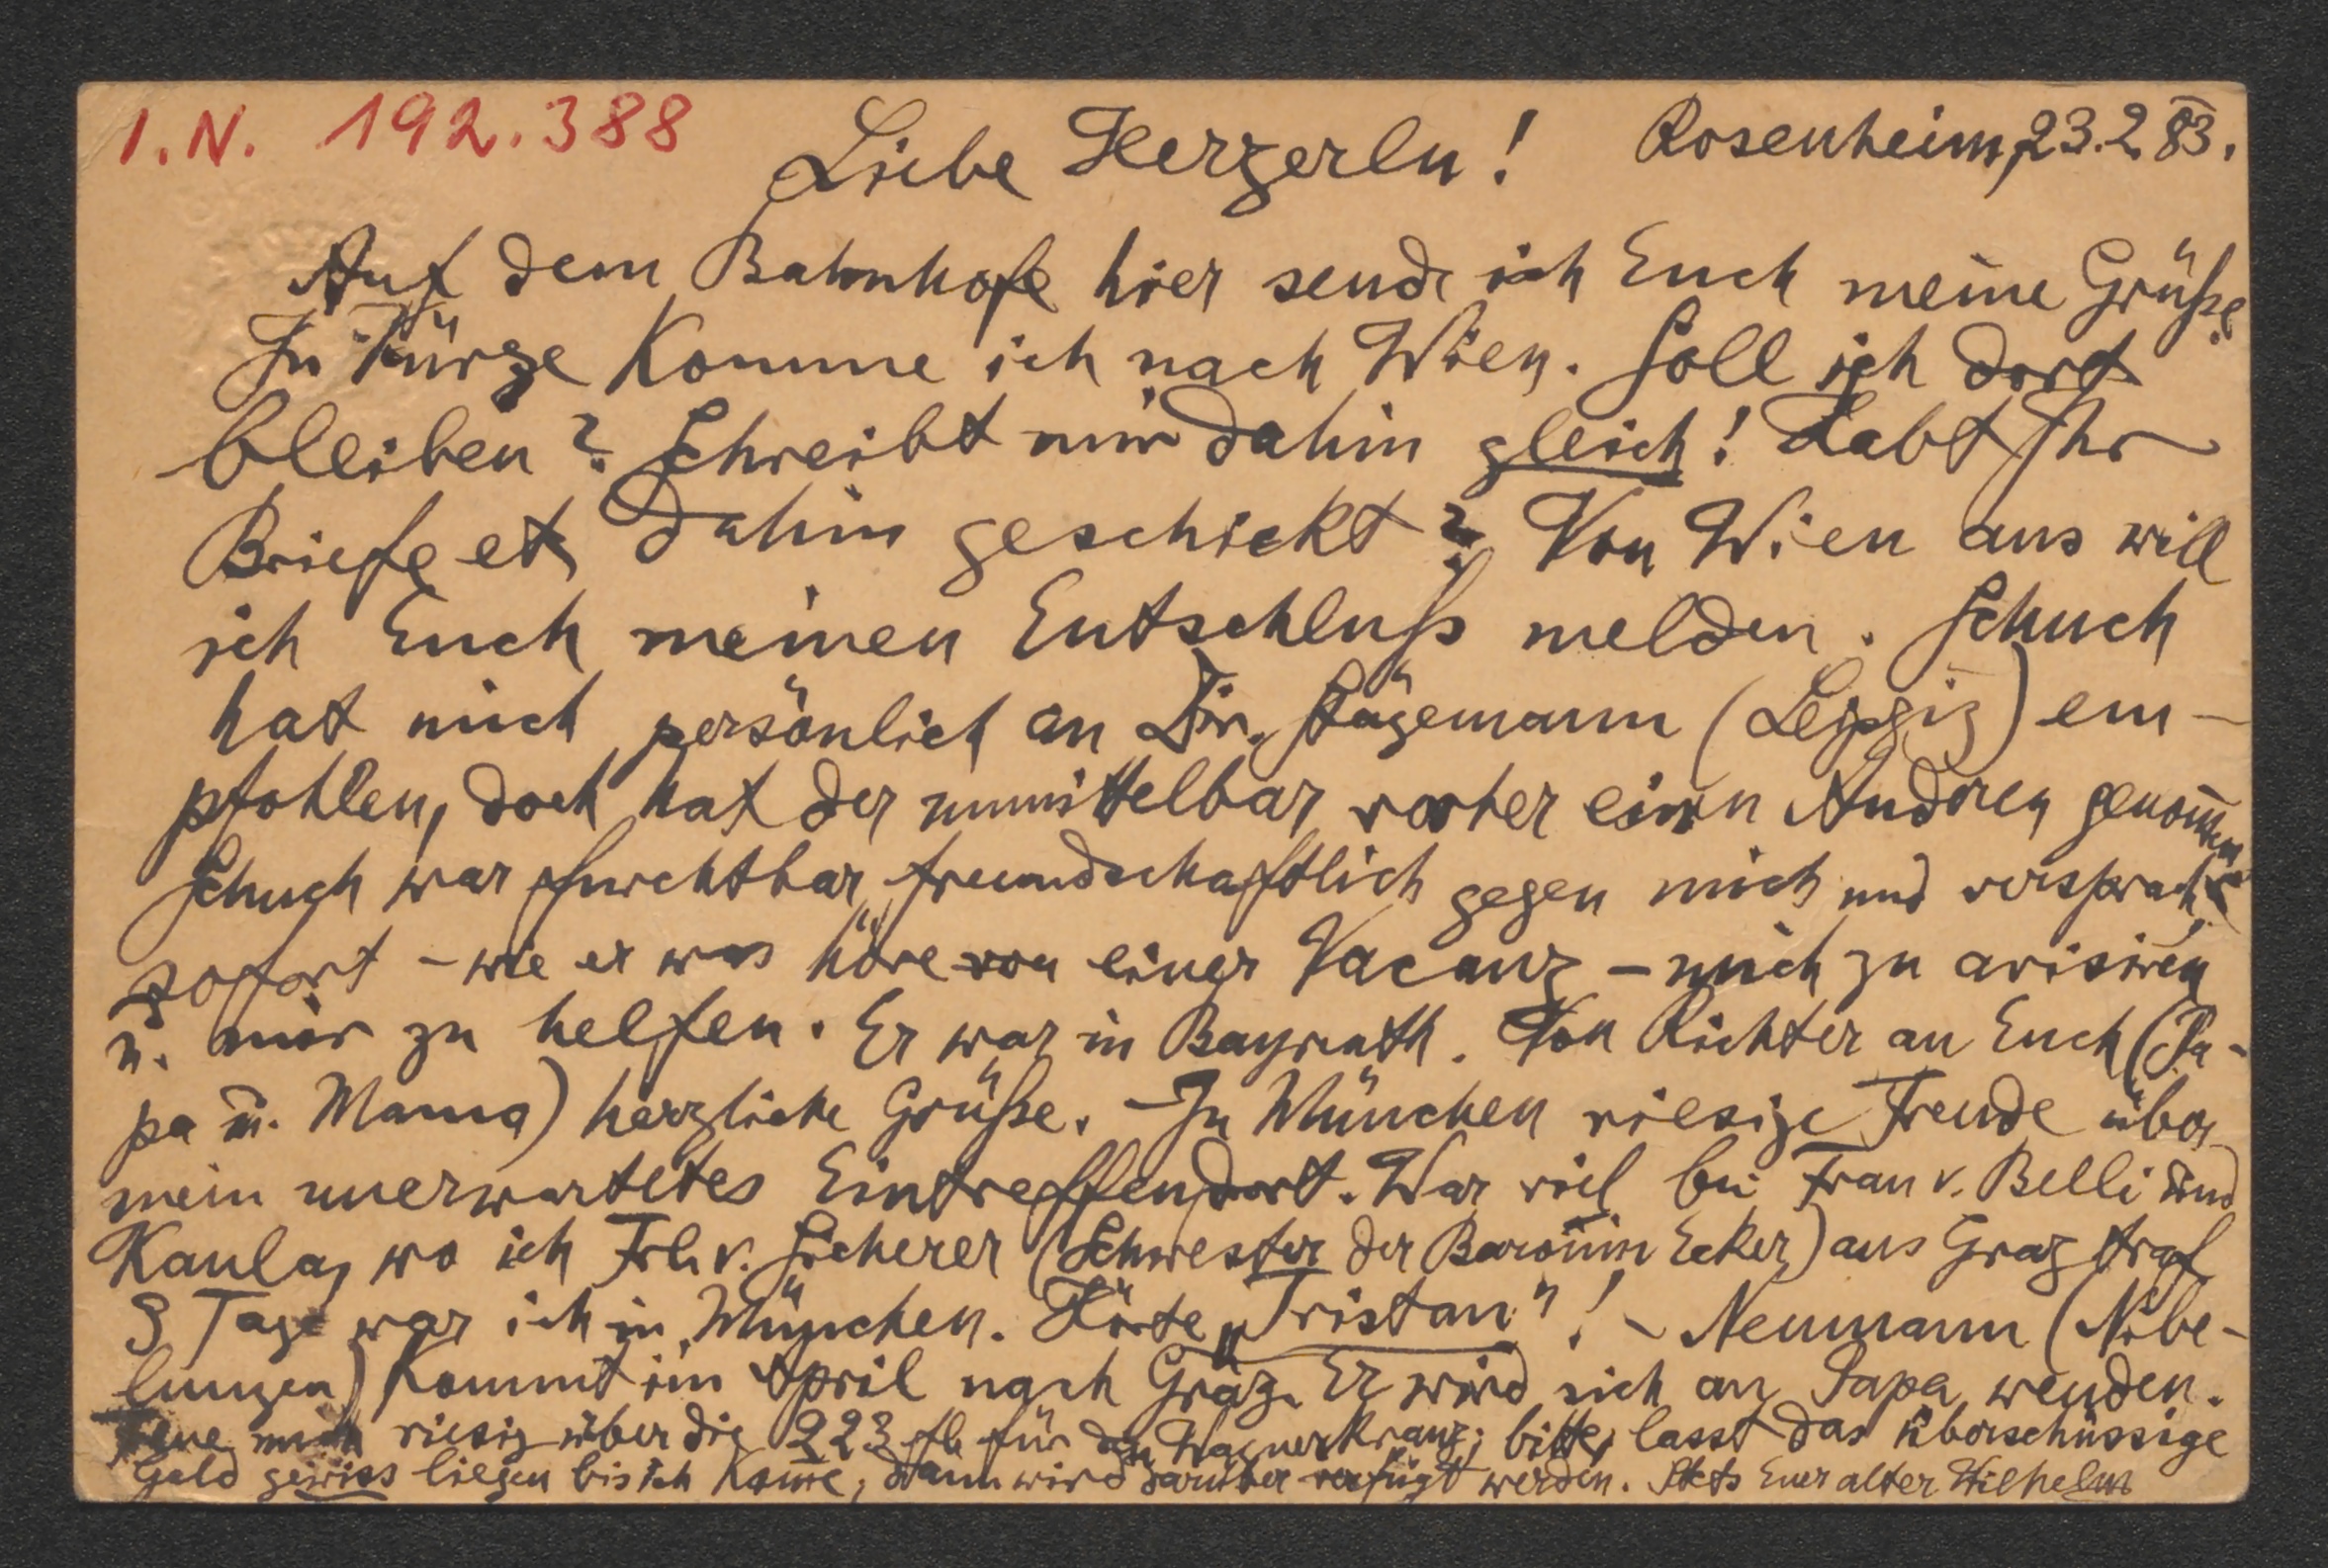 I.N. 192.388
Liebe Herzerln! Rosenheim, 23.2.83.
Auf dem Bahnhofe hier sende ich Euch meine Grüße.
In Kürze komme ich nach Wien. Soll ich dort
bleiben? Schreibt mir dahin gleich! Habt Ihr
Briefe etc dahin geschickt? Von Wien aus will
ich Euch meinen Entschluß melden. Schuch
hat mich persönlich an Dir. Stägemann (Leipzig) em-
pfohlen, doch hat der unmittelbar vorher einen Anderen genom̅en.
Schuch war furchtbar freundschaftlich gegen mich und versprach,
sofort – wie er was höre von einer Vacanz – mich zu avisiren
u. mir zu helfen. Er war in Bayreuth. Von Richter an Euch (Pa-
pa u. Mama) herzliche Grüße. – In München riesige Freude über
mein unerwartetes Eintreffen dort. War viel bei Frau v. Belli und
Kaula, wo ich Frl. v. Sicherer (Schwester der Baronin Ecker) aus Graz traf.
3 Tage war ich in München. Hörte „Tristan"! – Neumann (Nibe-
lungen) kommt im April nach Graz. Er wird sich an Papa wenden.
Freue mich riesig über die 223 fl. für den Wagnerkranz; bitte, lasst das überschüssige
Geld gewiss liegen bis ich kom̅e, dann wird darüber verfügt werden. Stets Euer alter Wilhelm